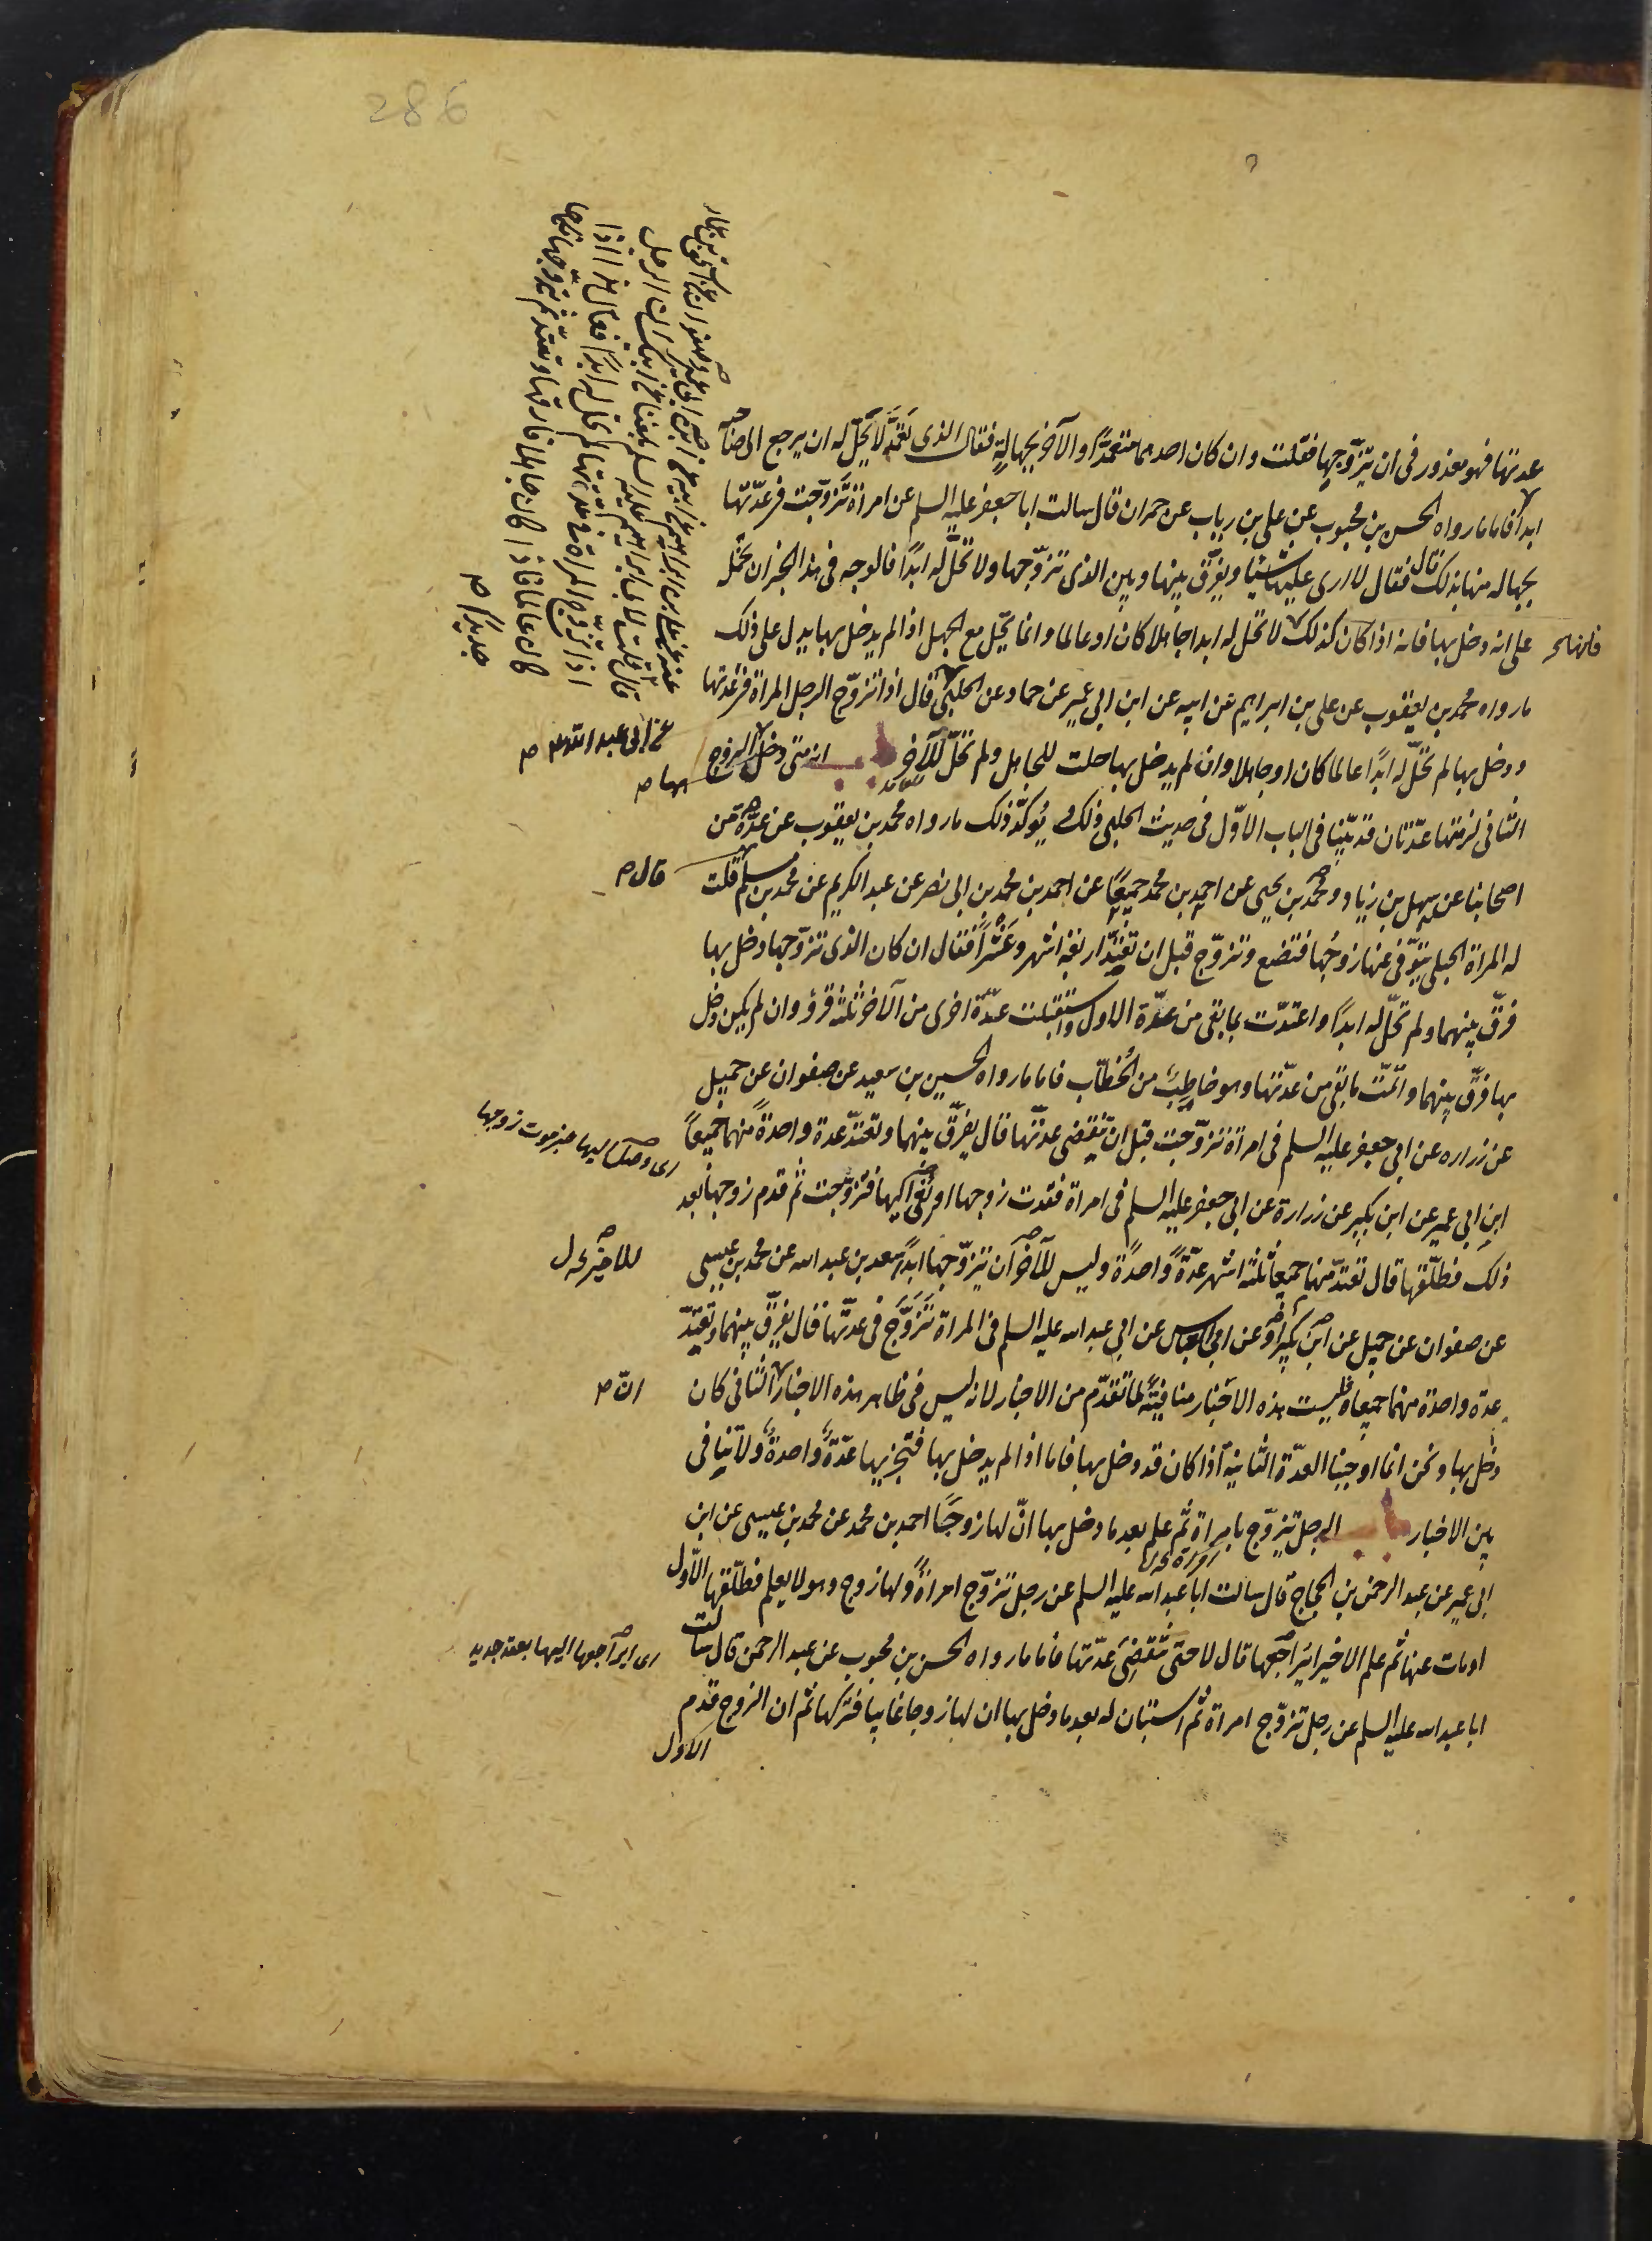 286
عدتها فهو معذور فى ان يتزوّجها فقلت وان كان احدهما متعمدًا والآخر بجهالةٍ فقال الذى تعمّد لا يحلّ له ان يرجع الى صاحبه
ابدا فاما ما رواه الحسن بن محبوب عن على بن رياب عن حمران قال سالت ابا جعفر عليه السلم عن امراة تزوّجت فى عدّتها
بجهاله منها بذلك قال فقال لا ارى عليها شيئا ويفرّق بينها وبين الذى تزوّجها ولا تحلّ له ابدًا فالوجه فى هذا الخبر ان نحمله
على انه دخل بها فانه اذا كان كذلك لا تحل له ابدا جاهلا كان او عالما وانما تحل مع الجهل اذا لم يدخل بها يدل على ذلك
ما رواه محمد بن يعقوب عن على بن ابراهيم عن ابيه عن ابن ابى عمير عن حماد عن الحلبى قال اذا تزوّج الرجل المراة فى عدتها
ودخل بها لم تحلّ له ابدًا عالما كان او جاهلا وان لم يدخل بها حلت للجاهل ولم تحلّ للآخر باب انه متى دخل بها الزوج
الثانى لزمتها عدّتان قد بيّنا فى الباب الاوّل فى حديث الحلبى ذلك ويؤكّد ذلك ما رواه محمد بن يعقوب عن عدّة من
اصحابنا عن سهل بن زياد ومحمد بن يحيى عن احمد بن محمد جميعًا عن احمد بن محمد بن ابى نصر عن عبد الكريم عن محمد بن مسلم قلت
له المراة الحبلى يتوّفى عنها زوجُها فتضع وتزوّج قبل ان تعتدّ اربعة اشهر وعَشْرًا فقال ان كان الذى تزوّجها دخل بها
فرّق بينهما ولم تحلّ له ابدًا واعتدّت بما بقى من عدّة الاول واستقبلت عدّة اخرى من الآخر ثلثة قرؤ وان لم يكن دخل
بها فرّق بينهما واتمّت ما بقى من عدّتها وهو خاطِبٌ من الخُطّاب فاما ما رواه الحسين بن سعيد عن صفوان عن جميل
عن زراره عن ابى جعفر عليه السلم فى امراة تزوّجت قبل ان تنقضى عدتها قال يفرّق بينهما وتعتدّ عدة واحدةً منهما جميعاً
ابن ابى عمير عن ابن بكير عن زرارة عن ابى جعفر عليه السلم فى امراة فقدت زوجها او نُعى اليها فتزوّجت ثم قدم زوجها بعد
ذلك فطلّقها قال تعتدّ منهما جميعاً ثلثة اشهر عدّةً واحدةً وليس للآخر ان يتزوّجها ابدًا سعد بن عبد الله عن محمد بن عيسى
عن صفوان عن جميل عن ابن بكير او عن ابى العباس عن ابى عبد الله عليه السلم فى المراة تَتَزَوَّج فى عدّتها قال يفرّق بينهما وتعتدّ
عدة واحدة منهما جميعا فليست هذه الاخبار منافيةً لما تقدّم من الاخبار لانه ليس فى ظاهر هذه الاخبار الثانى كان
دخل بها ونحن انما اوجبنا العدّة الثانية اذا كان قد دخل بها فاما اذا لم يدخل بها فتجزيها عدّةٌ واحدةٌ ولا تنافى
بين الاخبار باب الرجل يتزوّج بامراة ثم علم بعد ما دخل بها انّ لها زوجًا احمد بن محمد عن محمد بن عيسى عن ابن
ابى عمير عن عبد الرحمن بن الحجاج قال سالت ابا عبد الله عليه السلم عن رجل تزوّج امراةً ولها زوج وهو لا يعلم فطلّقها الاول
او مات عنها ثم علم الاخير ايراجعها قال لا حتى تنقضى عدّتها فاما ما رواه الحسن بن محبوب عن عبد الرحمن قال سالت
ابا عبد الله عليه السلم عن رجل تزوّج امراة ثم استبان له بعد ما دخل بها ان لها زوجا غايبا فتركها ثم ان الزوج قدم
الاول
عن ابى عبد الله ص
بها ص
قال ص
للاخير خ ل
انّ ص
اى ايراجعها اليها بعقد جديد
اذا تزوج المراة فى عدتها لم تحل له ابدًا فقال هذا اذا
كان عالما فاذا كان جاهلا فارقها وتعتدّ ثم يتزوّجها نكاحا
جديدًا ص